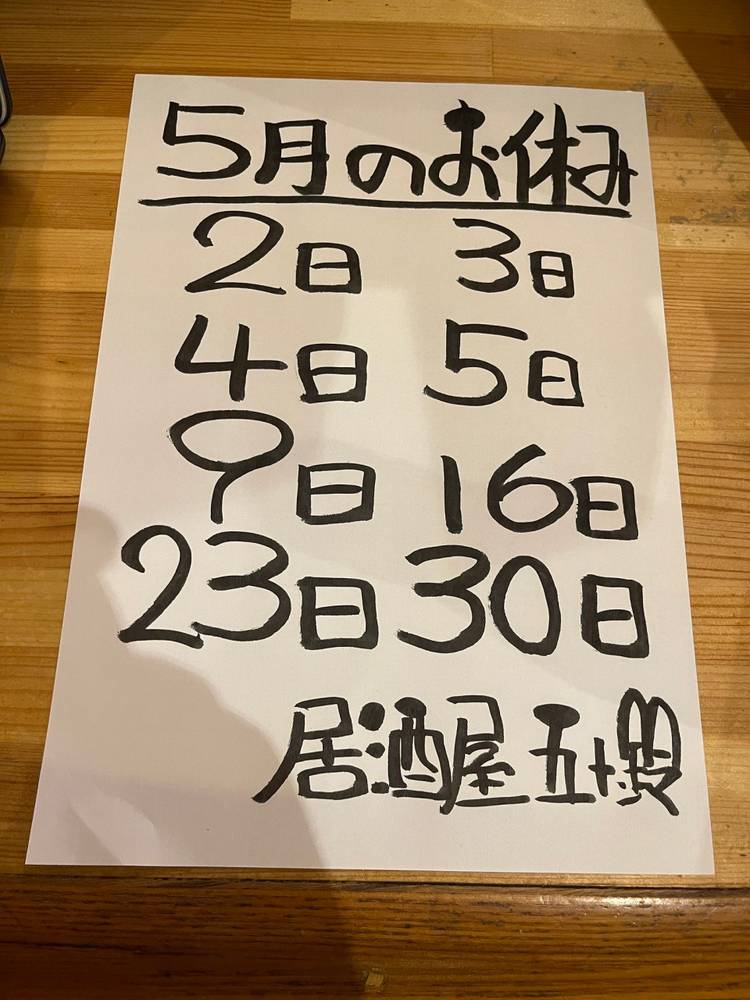 5月のお休み
2日 3日
4日 5日
9日 16日
23日 30日
居酒屋 五十